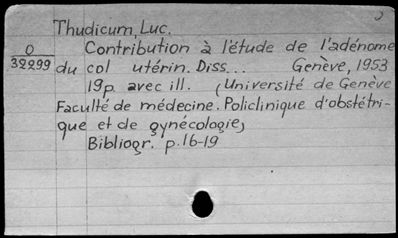 Thudicum, Luc.
O Contribution à l'étude de l'adénome
32299 du col utérin. Diss... Genève, 1953
19p. avec ill. (Université de Genève
Faculté de médecine. Policlinique d'obstétri-
que et de gynécologie)
Bibliogr. p. 16-19